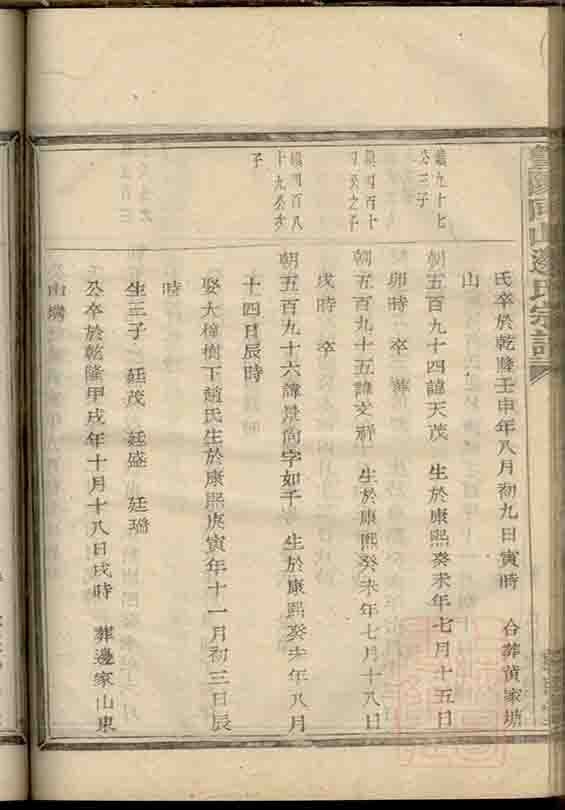 暨陽同山邊氏宗譜
氏卒於乾隆壬申年八月初九日寅時 合葬黃家塘
山
續九十七
公三子
朝五百九十四諱天茂 生於康熙癸未年七月十五日
卯時 卒 葬
四公之子
朝五百九十五諱文 生於康熙癸未年七月十八日
戌時 卒
續四百八
十九公次
子
朝五百九十六諱景尚字如千 生於康熙癸未年八月
十四日辰時
娶大樟樹下趙氏生於康熙庚寅年十一月初三日辰
時
生三子 廷茂 廷盛 廷璠
公卒於乾隆甲戌年十月十八日戌時 葬邊家山東
山塆